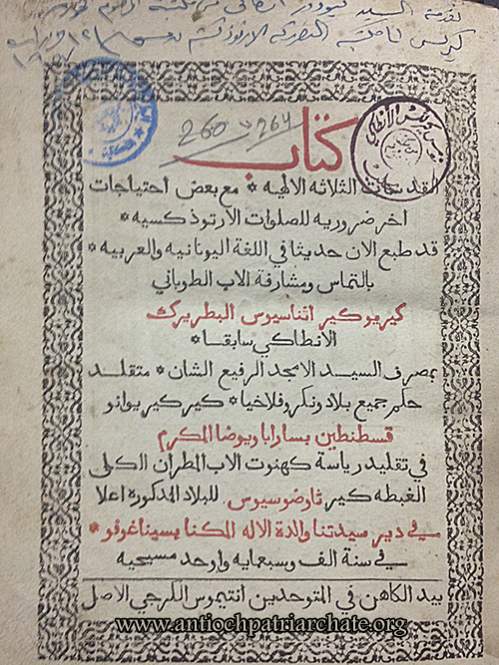 كتاب
260 264
القداسات الثلاثه الالهيه * مع بعض احتياجات
اخر ضروريه للصلوات الارتوذكسيه *
قد طبع الان حديثا في اللغة اليونانيه والعربيه *
بالتماس ومشارفة الاب الطوباني
كيريو كير اثناسيوس البطريرك
الانطاكي سابقا *
بمصرف السيد الامجد الرفيع الشان * متقلد
حكم جميع بلاد ونكروفلاخيا * كير كير يوانو
قسطنطين بسارابا ويوضا المكرم
في تقليد رياسة كهنوت الاب المطران الكلي
الغبطه كير ثاوضوسيوس. للبلاد المذكورة اعلا
في دير سيدتنا والدة الاله المكنا بسيناغوفو *
في سنة الف وسبعمايه واوحد مسيحيه
بيد الكاهن في المتوحدين انتيموس الكرجي الاصل
www.antiochpatriarchate.org